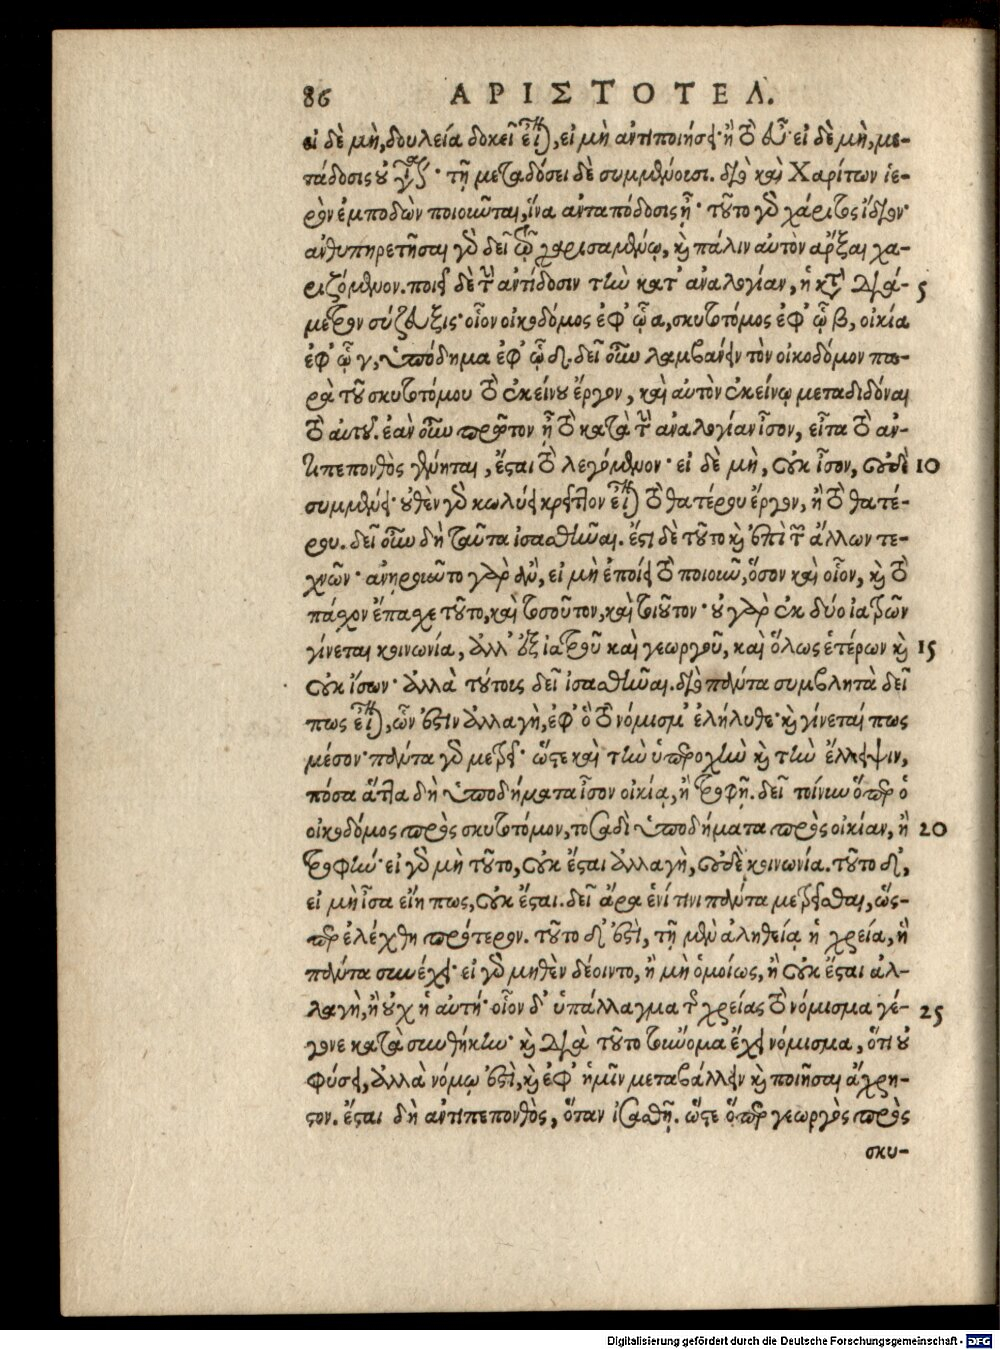 86 ΑΡΙΣΤΟΤΕΛ.
εἰ δὲ μὴ, δουλεία δοκεῖ εἶναι, εἰ μὴ ἀντιποιήσει· ἢ τὸ εὖ· εἰ δὲ μὴ, με-
τάδοσις οὐ γίνεται· τῇ μεταδόσει δὲ συμμένουσι. διὸ καὶ Χαρίτων ἱε-
ρὸν ἐμποδὼν ποιοῦνται, ἵνα ἀνταπόδοσις ᾖ· τοῦτο γὰρ χάριτος ἴδιον·
ἀνθυπηρετῆσαι γὰρ δεῖ τῷ χαρισαμένῳ, καὶ πάλιν αὐτὸν ἄρξαι χα-
ριζόμενον. ποιεῖ δὲ τὴν ἀντίδοσιν τὴν κατ' ἀναλογίαν, ἡ κατὰ διά- 5
μετρον σύζευξις· οἷον οἰκοδόμος ἐφ' ᾧ α, σκυτοτόμος ἐφ' ᾧ β, οἰκία
ἐφ' ᾧ γ, ὑπόδημα ἐφ' ᾧ δ. δεῖ οὖν λαμβάνειν τὸν οἰκοδόμον πα-
ρὰ τοῦ σκυτοτόμου τὸ ἐκείνου ἔργον, καὶ αὐτὸν ἐκείνῳ μεταδιδόναι
τὸ αὑτοῦ. ἐὰν οὖν πρῶτον ᾖ τὸ κατὰ τὴν ἀναλογίαν ἶσον, εἶτα τὸ ἀν-
τιπεπονθὸς γένηται, ἔσται τὸ λεγόμενον· εἰ δὲ μὴ, οὐκ ἶσον, οὐδὲ 10
συμμένει· οὐθὲν γὰρ κωλύει κρεῖττον εἶναι τὸ θατέρου ἔργον, ἢ τὸ θατέ-
ρου. δεῖ οὖν δὴ ταῦτα ἰσασθῆναι. ἔστι δὲ τοῦτο καὶ ἐπὶ τῶν ἄλλων τε-
χνῶν· ἀνῃροῦντο γὰρ ἂν, εἰ μὴ ἐποίει τὸ ποιοῦν, ὅσον καὶ οἷον, καὶ τὸ
πάσχον ἔπασχε τοῦτο, καὶ τοσοῦτον, καὶ τοιοῦτον· οὐ γὰρ ἐκ δύο ἰατρῶν
γίνεται κοινωνία, ἀλλ' ἐξ ἰατροῦ καὶ γεωργοῦ, καὶ ὅλως ἑτέρων καὶ 15
οὐκ ἴσων· ἀλλὰ τούτους δεῖ ἰσασθῆναι. διὸ πάντα συμβλητὰ δεῖ
πως εἶναι, ὧν ἐστὶν ἀλλαγὴ, ἐφ' ὃ τὸ νόμισμ' ἐλήλυθε· καὶ γίνεταί πως
μέσον· πάντα γὰρ μετρεῖ· ὥστε καὶ τὴν ὑπεροχὴν καὶ τὴν ἔλλειψιν,
πόσα ἄττα δὴ ὑποδήματα ἶσον οἰκίᾳ, ἢ τροφῇ. δεῖ τοίνυν ὅπερ ὁ
οἰκοδόμος πρὸς σκυτοτόμον, τοσαδὶ ὑποδήματα πρὸς οἰκίαν, ἢ 20
τροφήν· εἰ γὰρ μὴ τοῦτο, οὐκ ἔσται ἀλλαγὴ, οὐδὲ κοινωνία. τοῦτο δ',
εἰ μὴ ἶσα εἴη πως, οὐκ ἔσται. δεῖ ἄρα ἑνί τινι πάντα μετρεῖσθαι, ὥσ-
περ ἐλέχθη πρότερον. τοῦτο δ' ἐστὶ, τῇ μὲν ἀληθείᾳ ἡ χρεία, ἣ
πάντα συνέχει· εἰ γὰρ μηθὲν δέοιντο, ἢ μὴ ὁμοίως, ἢ οὐκ ἔσται ἀλ-
λαγὴ, ἢ οὐχ ἡ αὐτή· οἷον δ' ὑπάλλαγμα τῆς χρείας τὸ νόμισμα γέ- 25
γονε κατὰ συνθήκην· καὶ διὰ τοῦτο τοὔνομα ἔχει νόμισμα, ὅτι οὐ
φύσει, ἀλλὰ νόμῳ ἐστὶ, καὶ ἐφ' ἡμῖν μεταβάλλειν καὶ ποιῆσαι ἄχρη-
στον. ἔσται δὴ ἀντιπεπονθὸς, ὅταν ἰσασθῇ. ὥστε ὅπερ γεωργὸς πρὸς
σκυ-
Digitalisierung gefördert durch die Deutsche Forschungsgemeinschaft - DFG